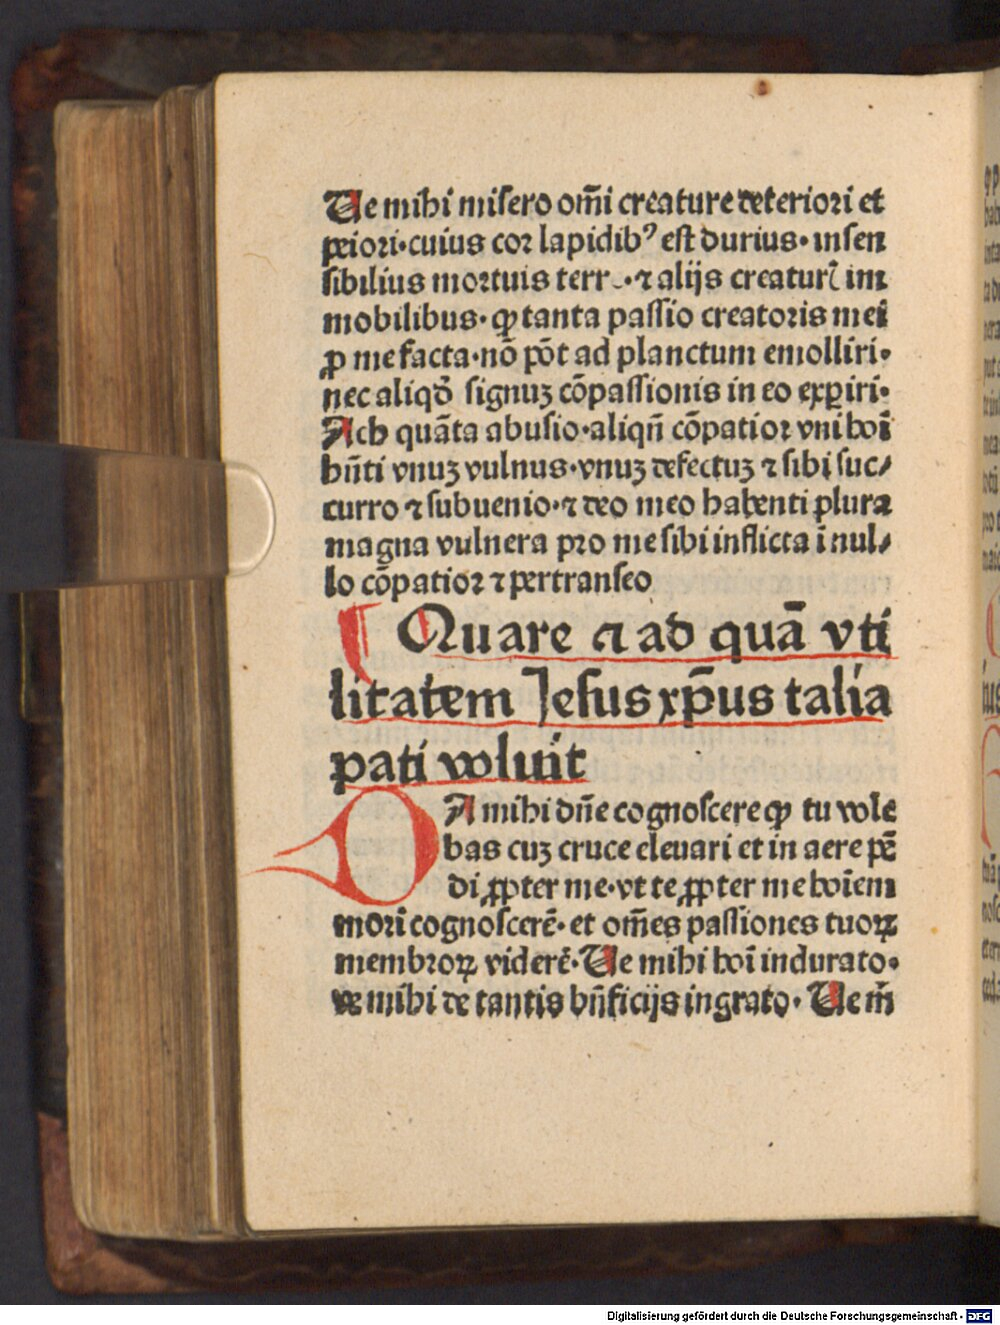 Ve mihi misero om̄i creature deteriori et
peiori·cuius cor lapidibꝰ est durius·insen
sibilius mortuis terr·⁊ alijs creatur̄ im
mobilibus·ꝙ tanta passio creatoris mei
ꝓ me facta·nō pōt ad planctum emolliri·
nec aliqd̄ signuꝫ cōpassionis in eo exꝑiri·
Ach quāta abusio·aliqn̄ cōpatior vni hoī
hn̄ti vnuꝫ vulnus·vnuꝫ defectuꝫ ⁊ sibi suc⸗
curro ⁊ subuenio·⁊ deo meo habenti plura
magna vulnera pro me sibi inflicta ī nul⸗
lo cōpatior ⁊ pertranseo
¶ Quare ⁊ ad quā vti
litatem Jesus xp̄us talia
pati voluit
DA mihi dn̄e cognoscere ꝙ tu vole
bas cuꝫ cruce eleuari et in aere pē
di ꝓpter me·vt te ꝓpter me hoīem
mori cognoscerē· et om̄es passiones tuoꝝ
membroꝝ viderē·Ve mihi hoī indurato·
ve mihi de tantis bn̄ficijs ingrato· Ve m̄
Digitalisierung gefördert durch die Deutsche Forschungsgemeinschaft - DFG